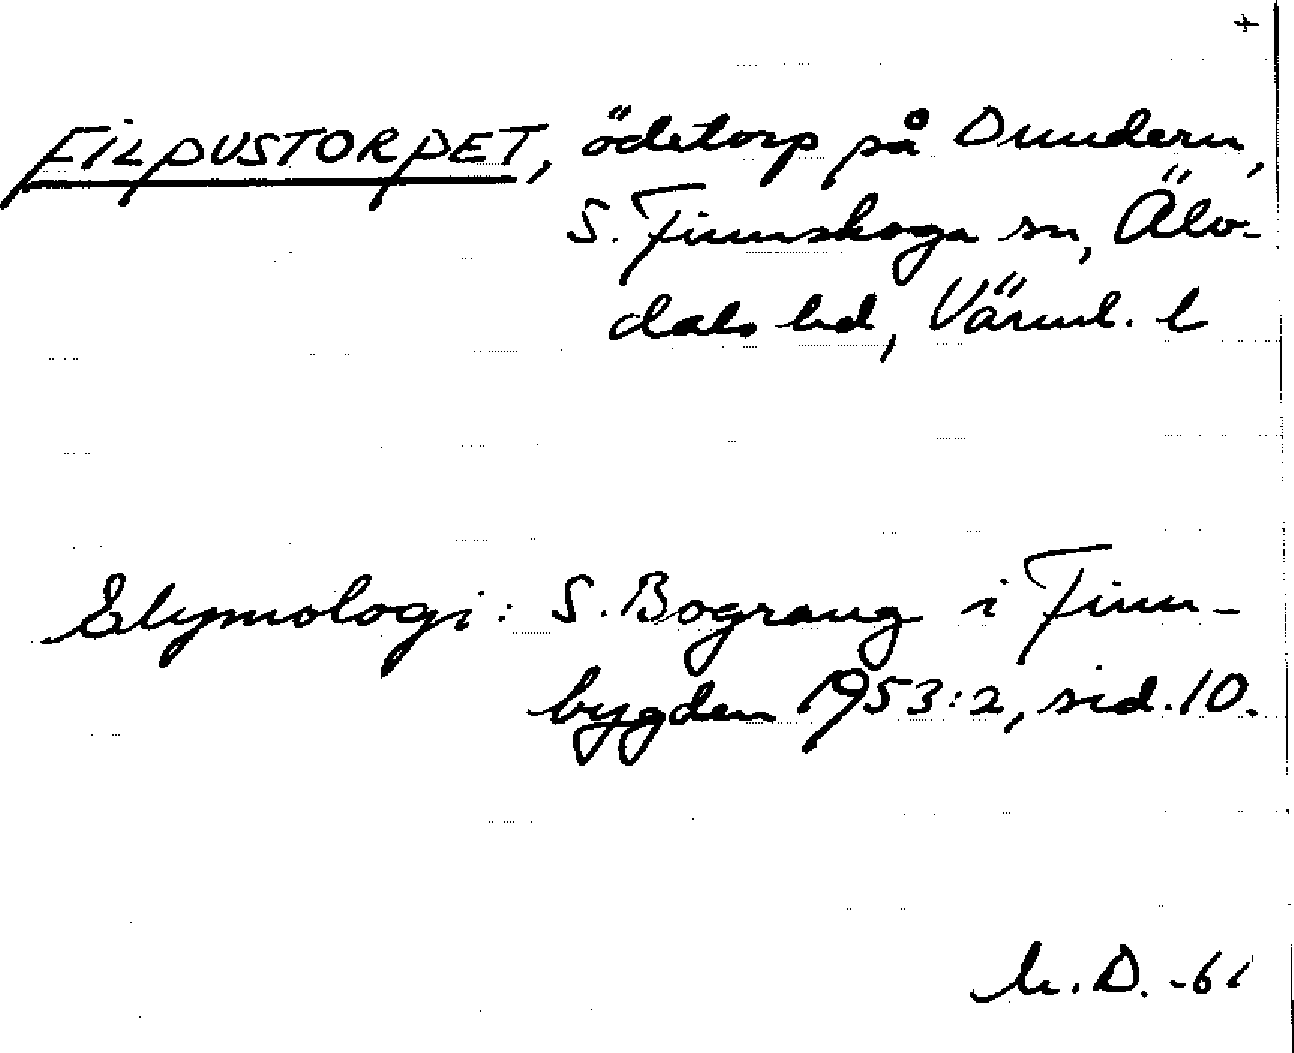 FILPUSTORPET, ödetorp på Dundern,
S. Finnskoga sn, Älv-
dals hd, Värml. l
Etymologi: S. Bograng i Finn-
bygden 1953:2, sid. 10.
M.D. -61